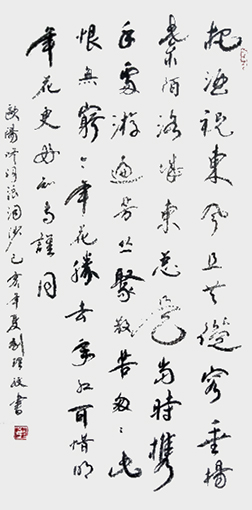 把酒祝東風且共從容垂楊
紫陌洛城東总是當時攜
手處游遍芳丛聚散苦匆々此
恨無窮今年花勝去年红可惜明
年花更好知與誰同
歐陽修词浪淘沙己亥年夏劉書